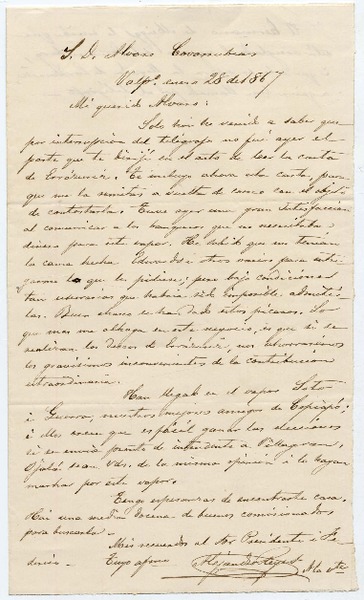 S. D. Alvaro Covarrubias
Valpº. enero 28 de 1867
Mi querido Alvaro:
Solo hoi he venido a saber que
por interrupcion del telégrafo no fué ayer el
parte que te dirijí en el acto de leer la carta
de Errázuriz. Te incluyo ahora esta carta, para
que me la remitas a vuelta de correo con el objeto
de contestarla. Tuve ayer una gran satisfaccion
al comunicar a los banqueros que no necesitaba
dinero para este vapor. He sabido que me tenian
la cama hecha Edwards i otros varios para
lo que le pidiese; pero bajo condiciones
tan onerosas que habria sido imposible admitir
las. Buen chasco se han dado estos pícaros. Lo
que mas me halaga en este negocio, es que si se
realizan los deseos de Errázuriz, nos ahorraremos
los gravísimos inconvenientes de la contribucion
estraordinaria.
Han llegado en el vapor Soto
i Guerra, nuestros mejores amigos de Copiapó;
i ellos creen que es fácil ganar las elecciones
si se envia pronto de intendente a Villagran,
Ojalá sean Vds. de la misma opinion i lo hagan
marchar por este vapor.
Tengo esperanzas de encontrarte casa.
Hai una media docena de buenos comisionados
para buscarla.
Mis recuerdos al Sor Presidente i Fe
derico. Tuyo afmo.
Alejandro Reyes